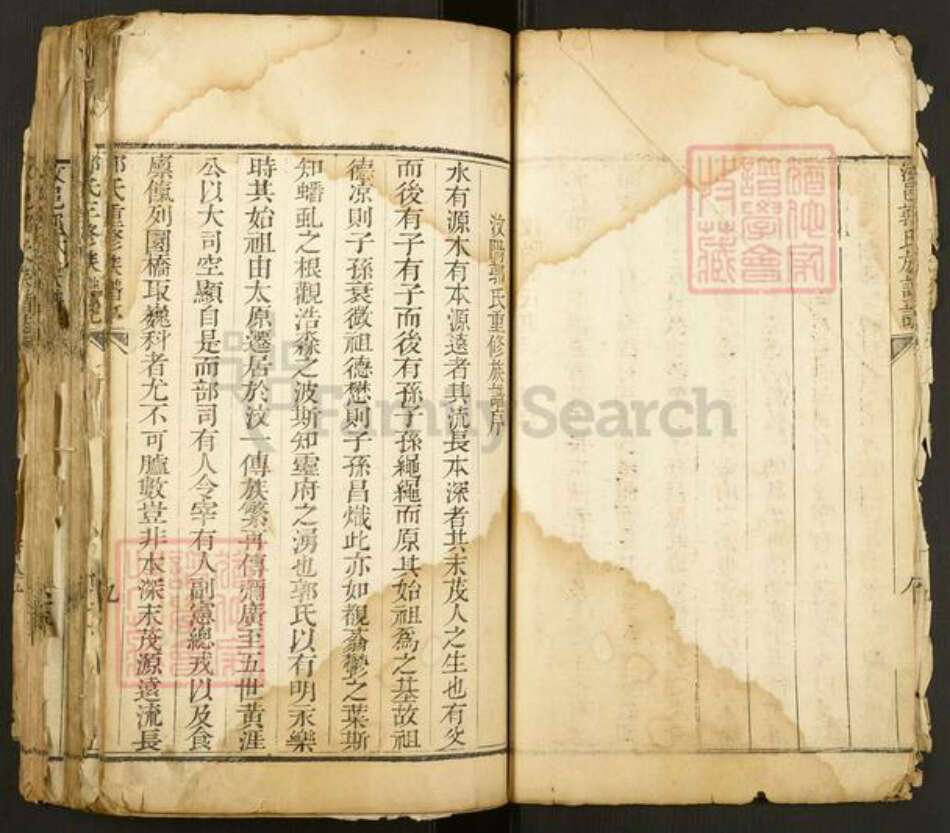 汶陽郭氏重修族譜序
水有源木有本源遠者其流長本深者其末茂人之生也有父
而後有子有子而後有孫子孫繩繩而原其始祖為之基故祖
德凉則子孫衰微祖德懋則子孫昌熾此亦如觀蓊鬱之葉斯
知蟠虬之根觀浩淼之波斯知靈府之湧也郭氏以有明永樂
時其始祖由太原遷居於汶一傳族繁再傳彌廣至五世黃涯
公以大司空顯自是而部司有人令宰有人副憲總戎以及食
廪餼列圜橋取巍科者尤不可臚數豈非本深末茂源遠流長
郭氏重修族譜序
九
FamilySearch